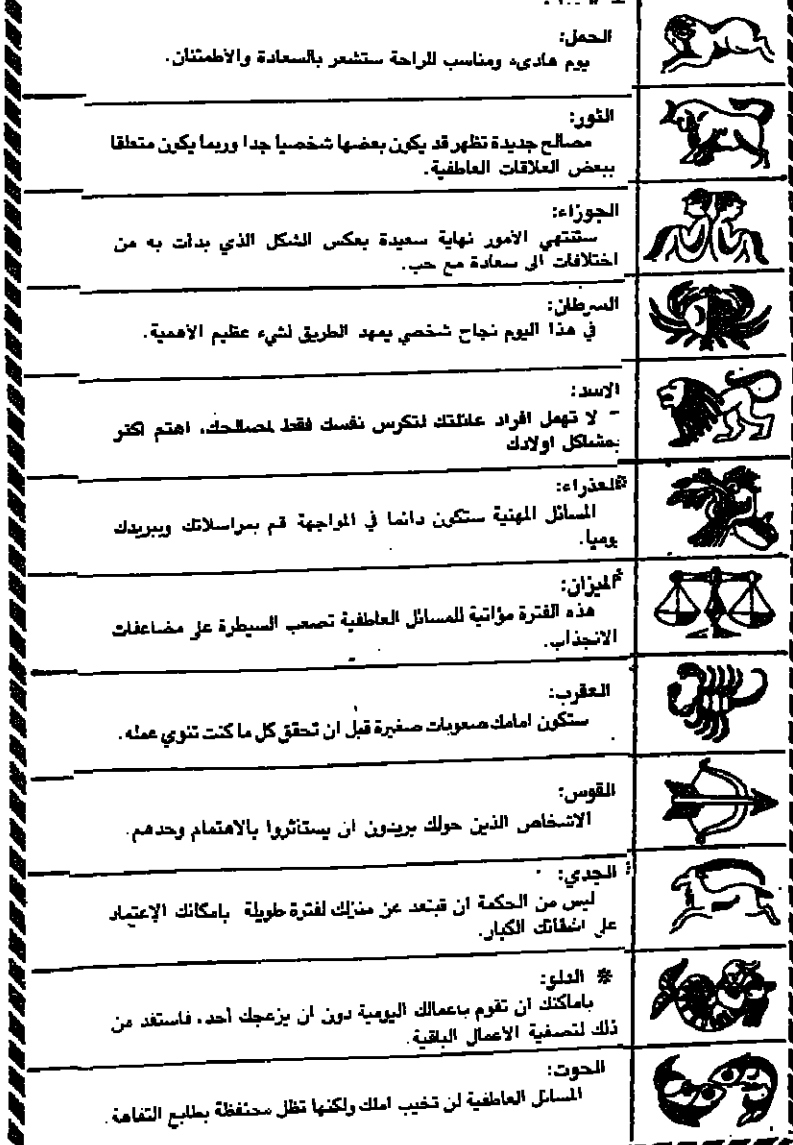 الحمل:
يوم هادىء ومناسب للراحة ستشعر بالسعادة والاطمئنان.
الثور:
مصالح جديدة تظهر قد يكون بعضها شخصيا جدا وربما يكون متعلقا
ببعض العلاقات العاطفية.
الجوزاء:
ستنتهي الامور نهاية سعيدة بعكس الشكل الذي بدأت به من
اختلافات الى سعادة مع حب.
السرطان:
في هذا اليوم نجاح شخصي يمهد الطريق لشيء عظيم الاهمية.
الاسد:
- لا تهمل افراد عائلتك لتكرس نفسك فقط لمصالحك، اهتم اكثر
بمشاكل اولادك
العذراء:
المسائل المهنية ستكون دائما في المواجهة قم بمراسلاتك وببريدك
يوميا.
الميزان:
هذه الفترة مؤاتية للمسائل العاطفية تصعب السيطرة على مضاعفات
الانجذاب.
العقرب:
ستكون امامك صعوبات صغيرة قبل ان تحقق كل ما كنت تنوي عمله.
القوس:
الاشخاص الذين حولك يريدون ان يستأثروا بالاهتمام وحدهم.
الجدي:
ليس من الحكمة ان تبتعد عن منزلك لفترة طويلة بامكانك الإعتماد
على اشقائك الكبار.
❊ الدلو:
باماكنك ان تقوم باعمالك اليومية دون ان يزعجك أحد، فاستفد من
ذلك لتصفية الاعمال الباقية.
الحوت:
المسائل العاطفية لن تخيب املك ولكنها تظل محتفظة بطابع التفاهة.